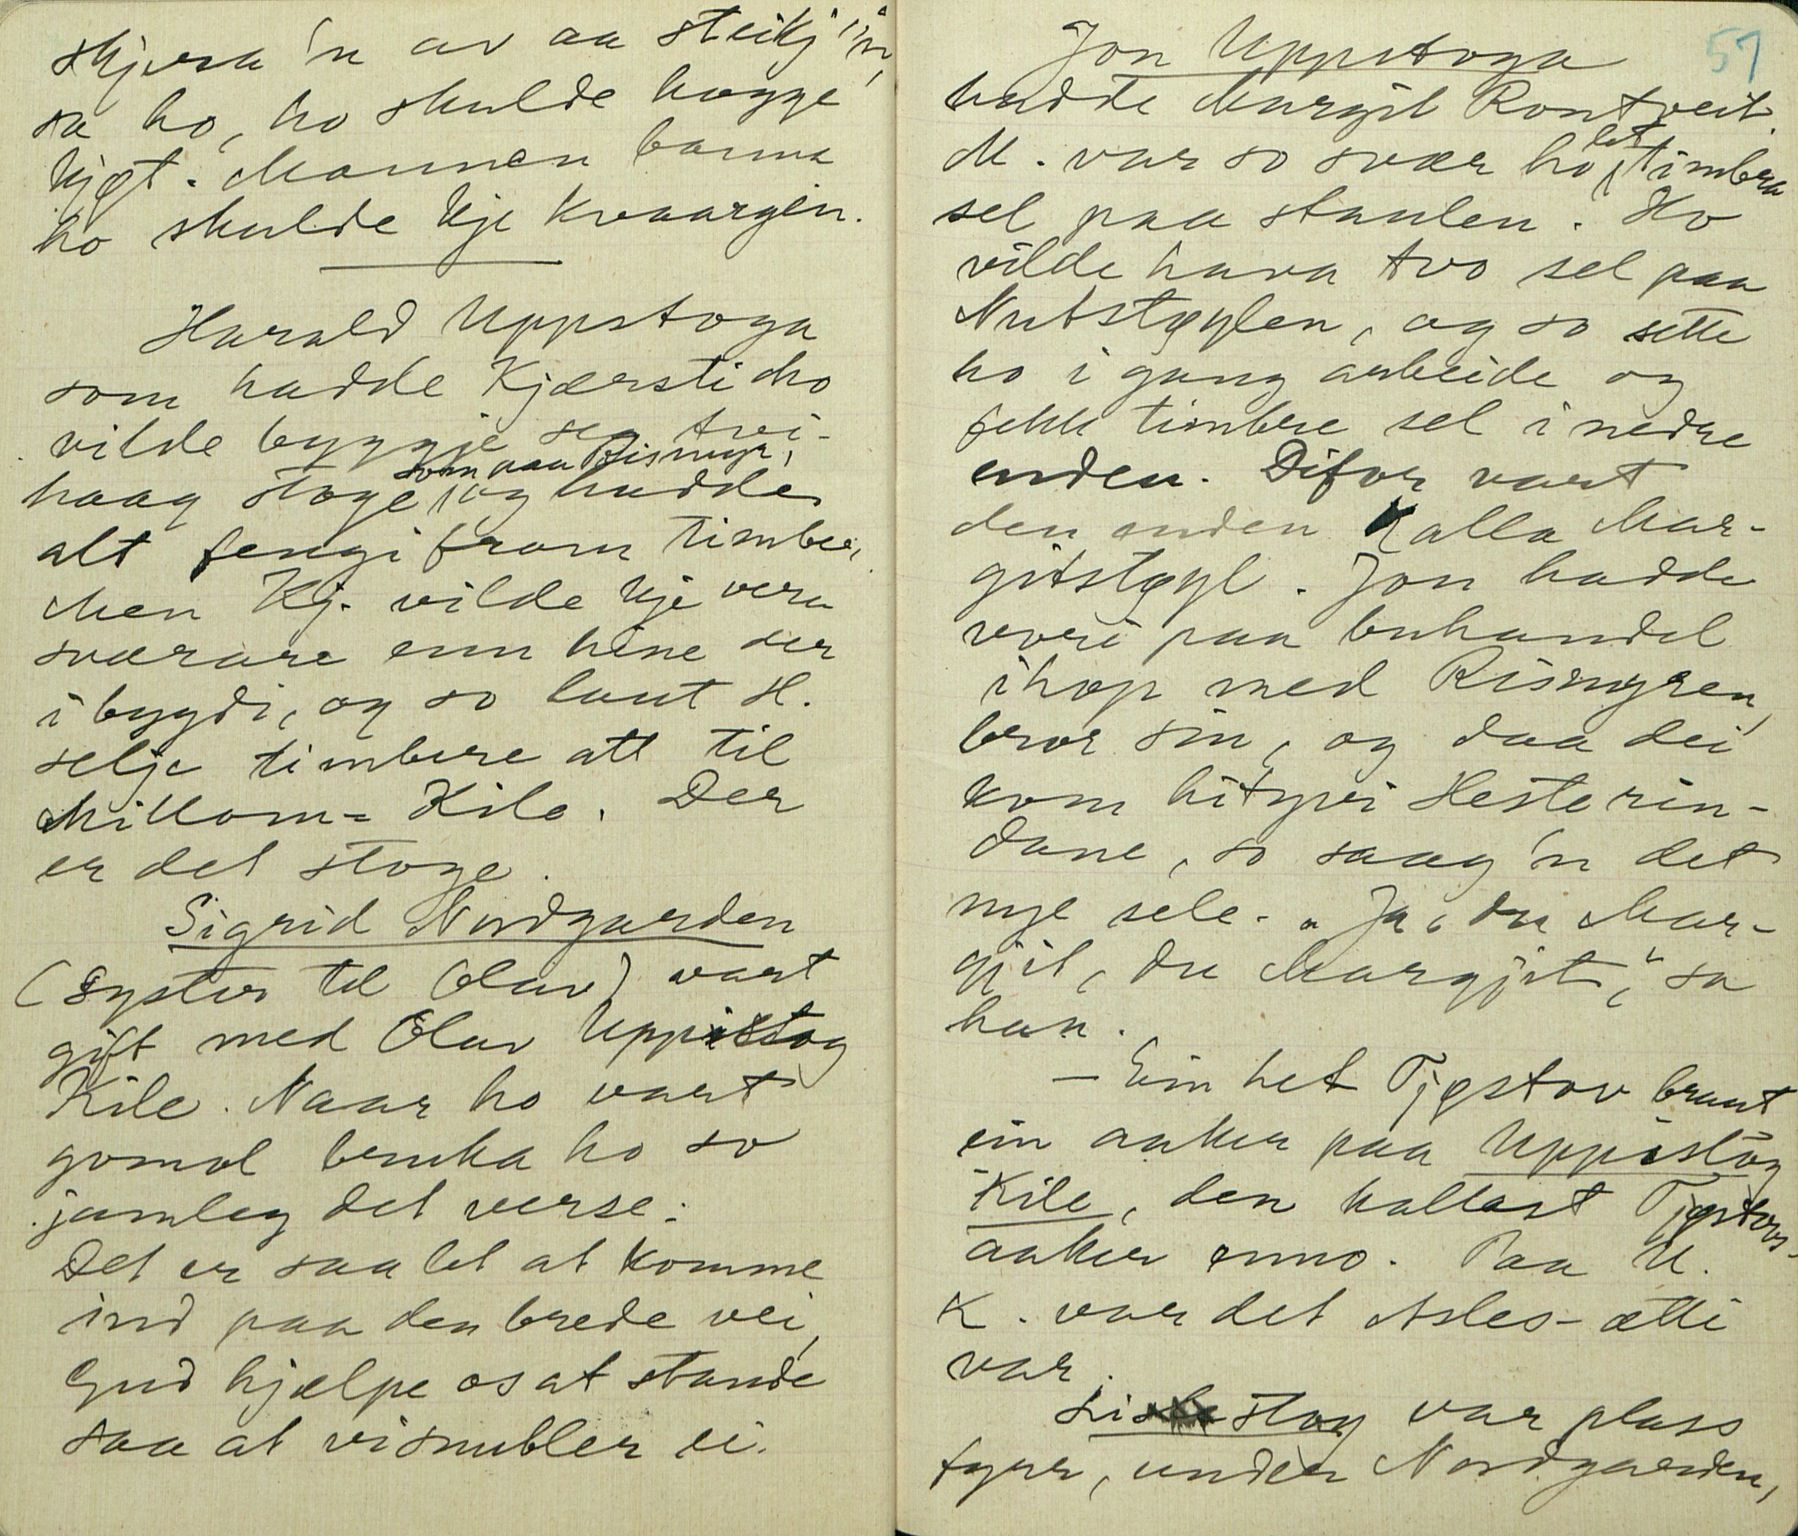 skjera 'n av aa steikj 'n,
sa ho, ho skulde hogge
kjøt. Mannen banna
ho skulde kje kvaargjin.
Harald Uppstoga
som hadde Kjærsti dho
vilde byggje seg tvi-
haag stoge, som aa Rismyr, og hadde
alt fengi fram timbre,
Men Kj. vilde kje vera
sværare enn hine der
i bygdi, og so laut H.
selje timbere att til
Millom-Kile. Der
er det stoge.
Sigrid Nordgarden
(Syster til Olav) vart
gift med Olav Uppistog
Kile. Naar ho vart
gomol bruka ho so
jamleg det verse:
Det er saa let at komme
ind paa den brede vei,
Gud hjælpe os at stande
saa at vi snubler ei.
57
Jon Uppstoga
hadde Margit Rontveit.
M. var so svær ho let timbra
sel paa staulen. Ho
vilde hava tvo sel paa
Nutstøylen, og so sette
ho i gang arbeide og
fekk timbre sel i nedre
enden. Difor vart
den enden kalla Mar-
gitstøyl. Jon hadde
vori paa buhandel
ihop med Rismyren,
bror sin, og daa dei
kom hityvi Hesterin-
dane, so saag 'n det
nye sele. "Ja, du Mar-
gjit, du Margjit," sa
han.
— Ein het Tjøstov braut
ein aaker paa Uppistog
Kile, den kallast Tjøstovs-
aaker enno. Paa U.
K. var det Asles-ætti
var.
Listog var plass
fyrr, under Nordgarden,